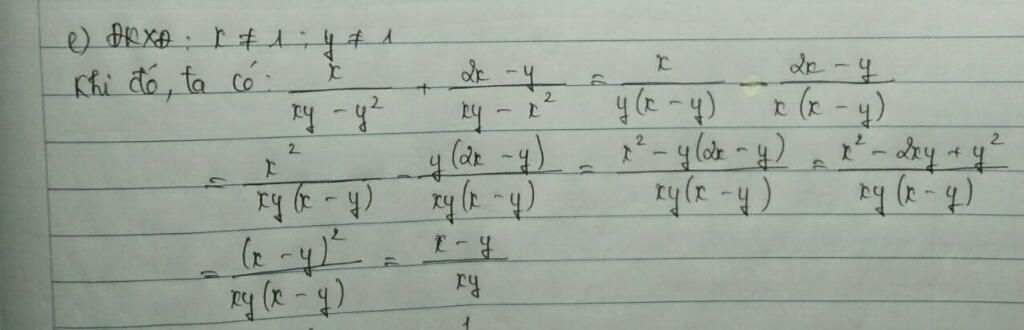 e) ĐKXĐ : x ≠ 1 ; y ≠ 1
Khi đó, ta có: x/(xy - y²) + (2x - y)/(xy - x²) = x/(y(x - y)) - (2x - y)/(x(x - y))
= x²/(xy(x - y)) - y(2x - y)/(xy(x - y)) = (x² - y(2x - y))/(xy(x - y)) = (x² - 2xy + y²)/(xy(x - y))
= (x - y)²/(xy(x - y)) = (x - y)/(xy)
1